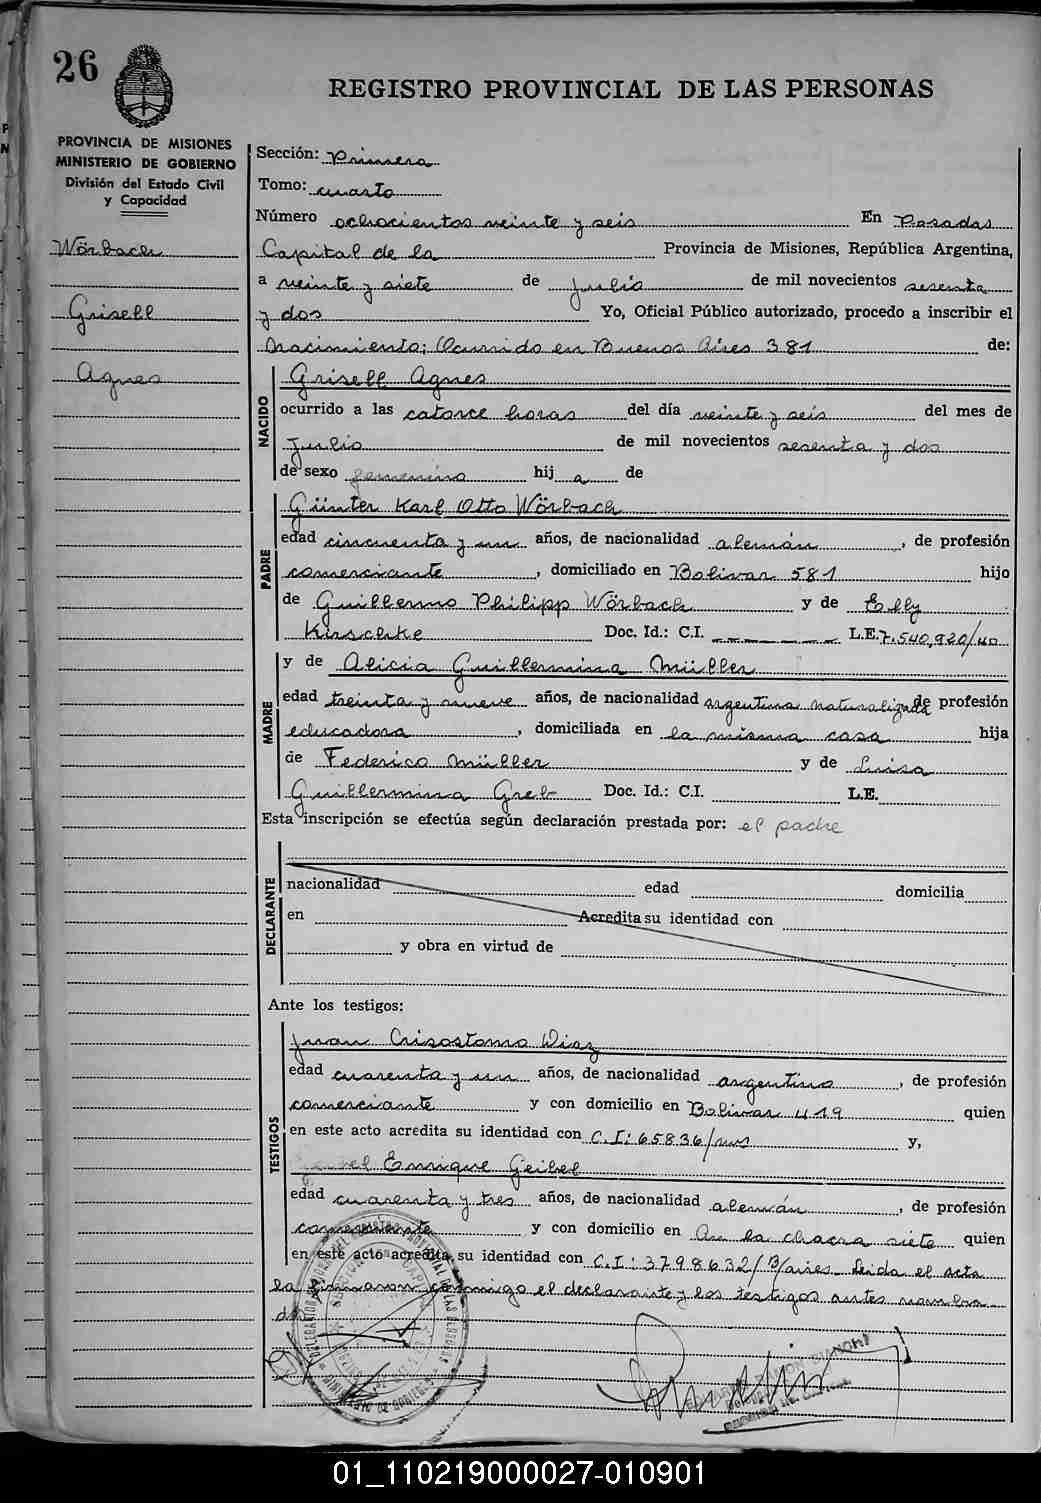 26
REGISTRO PROVINCIAL DE LAS PERSONAS
PROVINCIA DE MISIONES
MINISTERIO DE GOBIERNO
División del Estado Civil
y Capacidad
Wörbach
Grisell
Agnes
Sección: Primera
Tomo: cuarto
Número ochocientos veinte y seis En Posadas
Capital de la Provincia de Misiones, República Argentina,
a veinte y siete de Julio de mil novecientos sesenta
y dos Yo, Oficial Público autorizado, procedo a inscribir el
Nacimiento; Ocurrido en Buenos Aires 381 de:
NACIDO
Grisell Agnes
ocurrido a las catorce horas del día veinte y seis del mes de
Julio de mil novecientos sesenta y dos
de sexo femenino hij a de
PADRE
Günter Karl Otto Wörbach
edad cincuenta y un años, de nacionalidad alemán, de profesión
comerciante, domiciliado en Bolivar 581 hijo
de Guillermo Philipp Wörbach y de Elly
Kirschke Doc. Id.: C.I. L.E. 7.540,920/40
MADRE
y de Alicia Guillermina Müller
edad treinta y nueve años, de nacionalidad argentina naturalizada de profesión
educadora, domiciliada en la misma casa hija
de Federico Müller y de Luisa
Guillermina Greb Doc. Id.: C.I. L.E.
Esta inscripción se efectúa según declaración prestada por: el padre
DECLARANTE
nacionalidad edad domicilia
en Acredita su identidad con
y obra en virtud de
Ante los testigos:
TESTIGOS
Juan Crisostomo Diaz
edad cuarenta y un años, de nacionalidad argentino, de profesión
comerciante y con domicilio en Bolivar 419 quien
en este acto acredita su identidad con C.I: 65836/mns y,
Enrique Geibel
edad cuarenta y tres años, de nacionalidad alemán, de profesión
comerciante y con domicilio en En la chacra siete quien
en este acto acredita su identidad con C.I: 3798632/B/aires. Leida el acta
la firmaron conmigo el declarante y los testigos antes nombra
dos
01_110219000027-010901